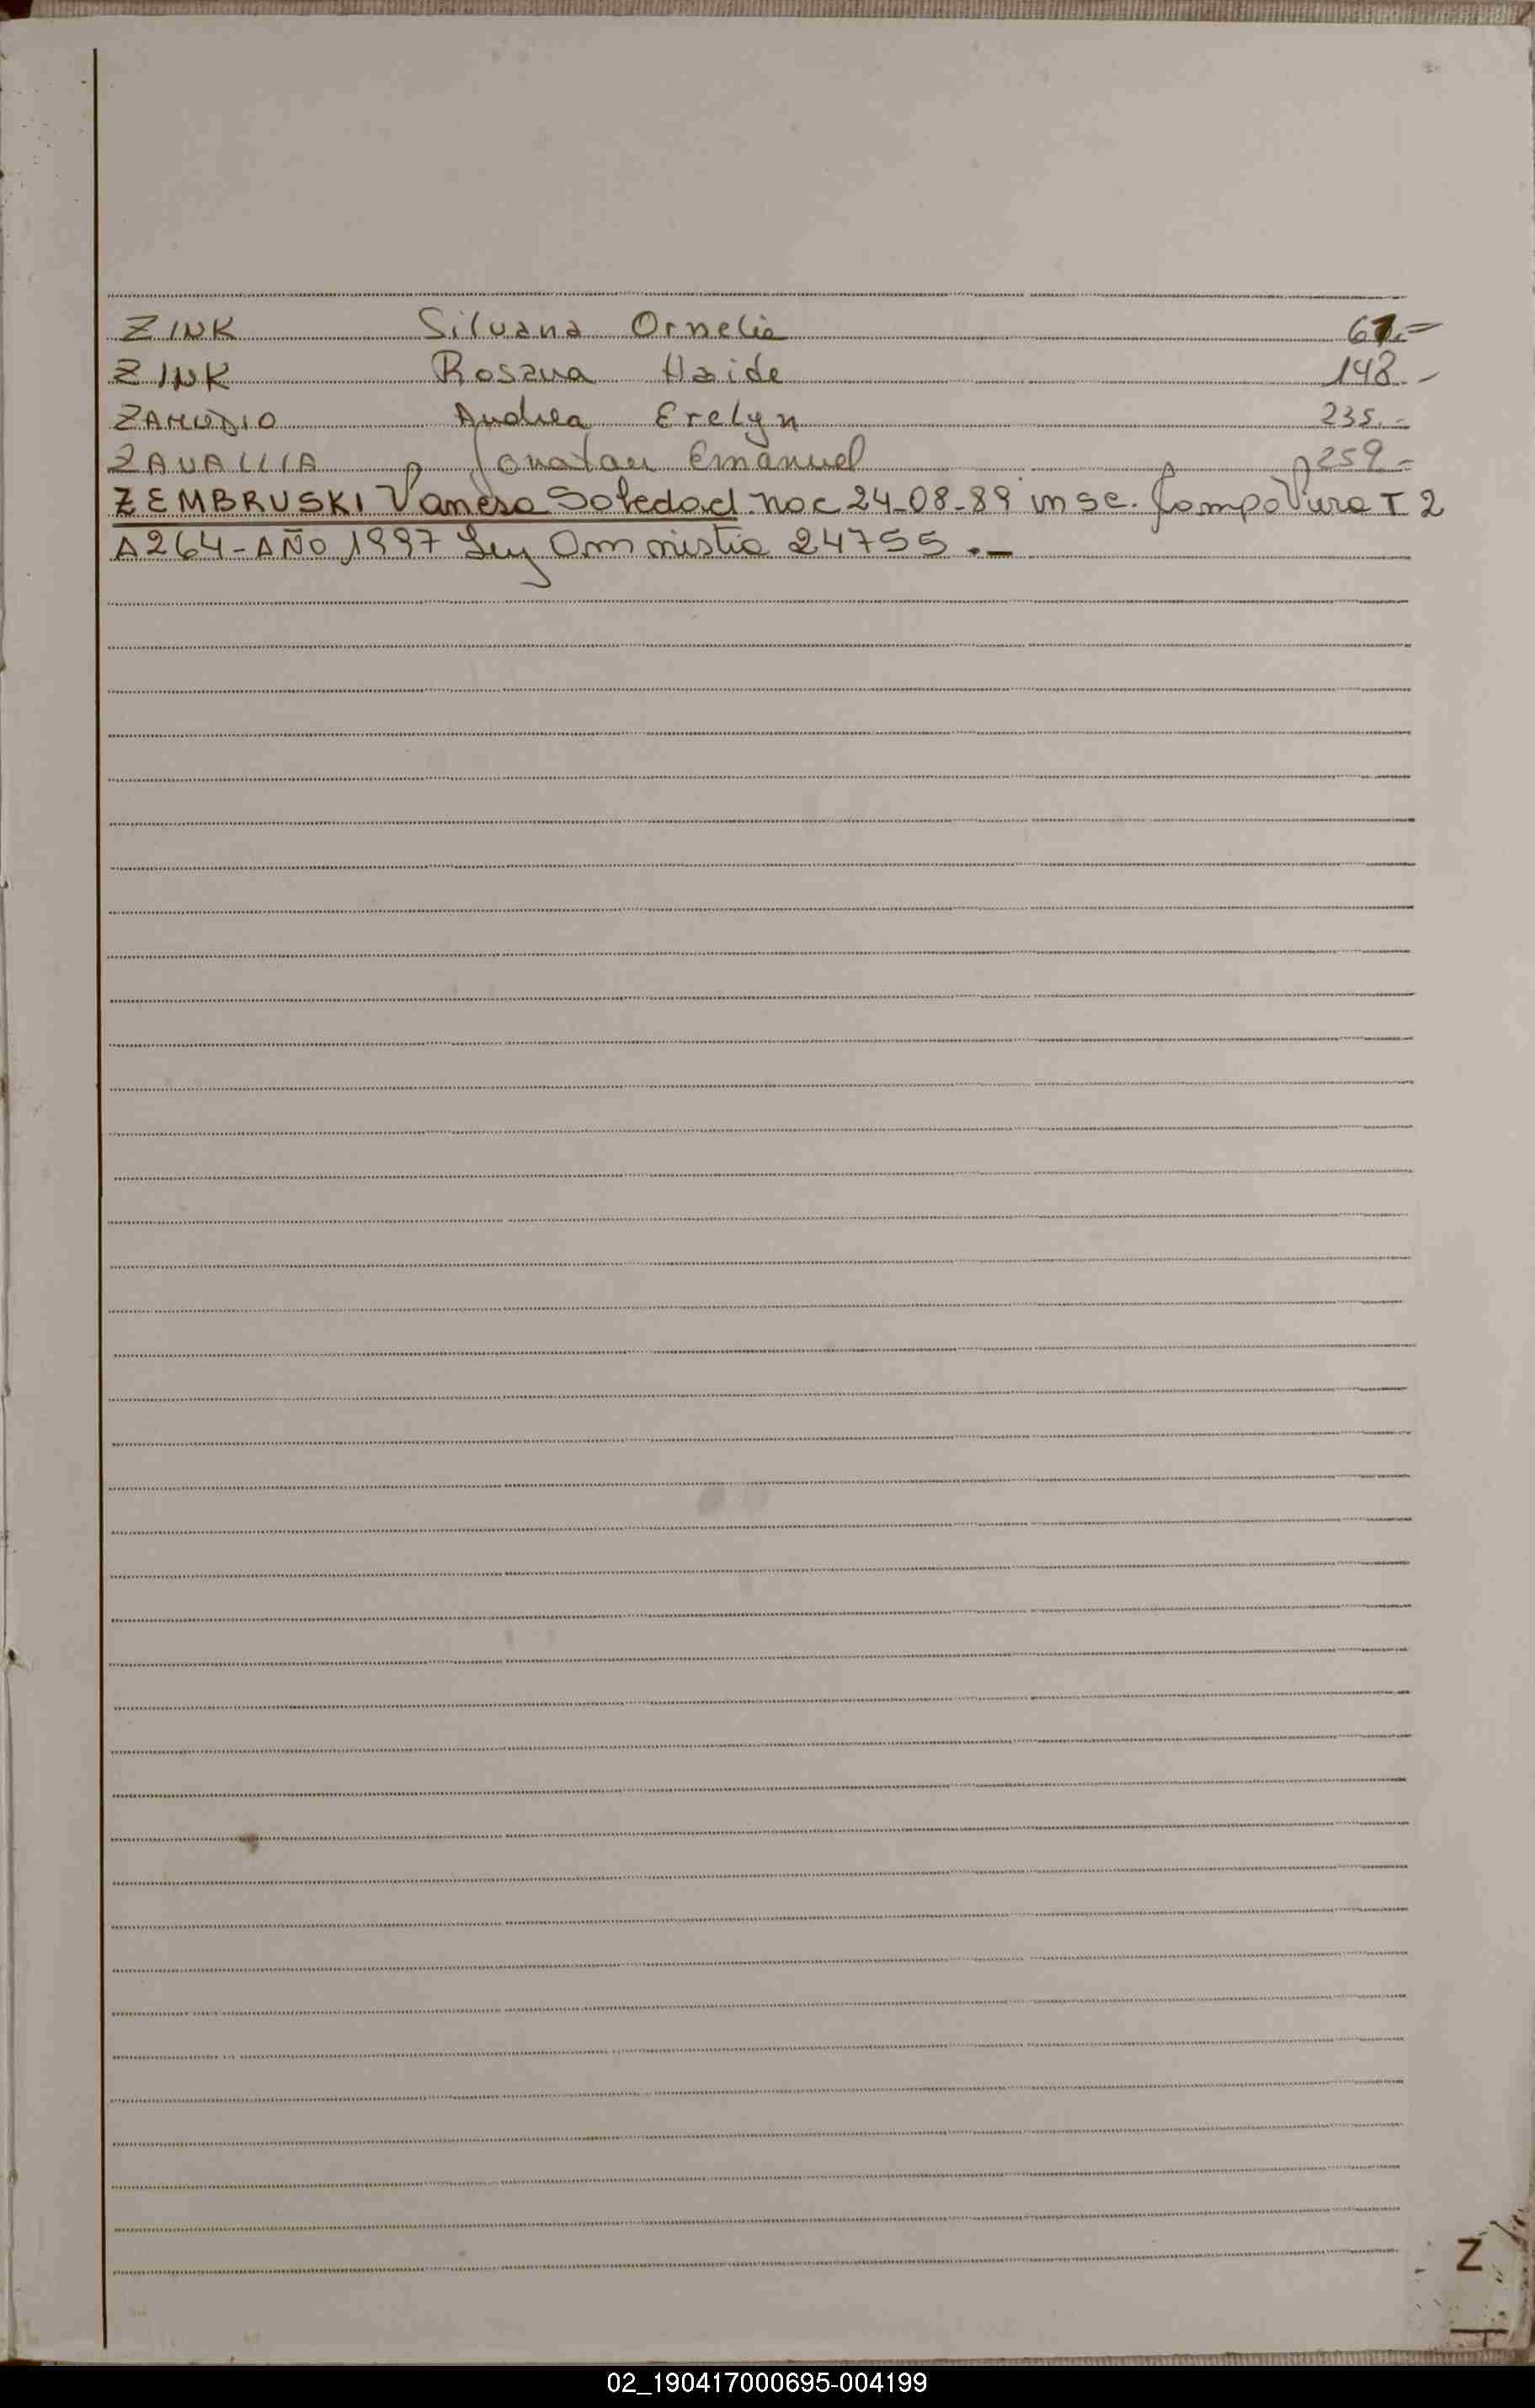 ZINK Silvana Ornelia 61.=
ZINK Rosana Haide 148.-
ZAMUDIO Andrea Evelyn 235.-
ZAVALLIA Jonatan Emanuel 259-
ZEMBRUSKI Vanesa Soledad. nac 24-08-89 insc. Pampa T 2
A264-AÑO 1997 Ley Amnistia 24755.-
Z
02_190417000695-004199